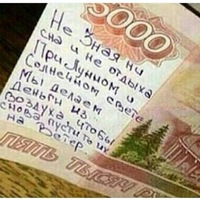 5000
Не Зная ни
сна и не отдыха
При Лунном и
солнечном свете
Мы делаем
деньги из
воздуха, чтобы
снова пустить их
на Ветер.
ПЯТЬ ТЫСЯЧ